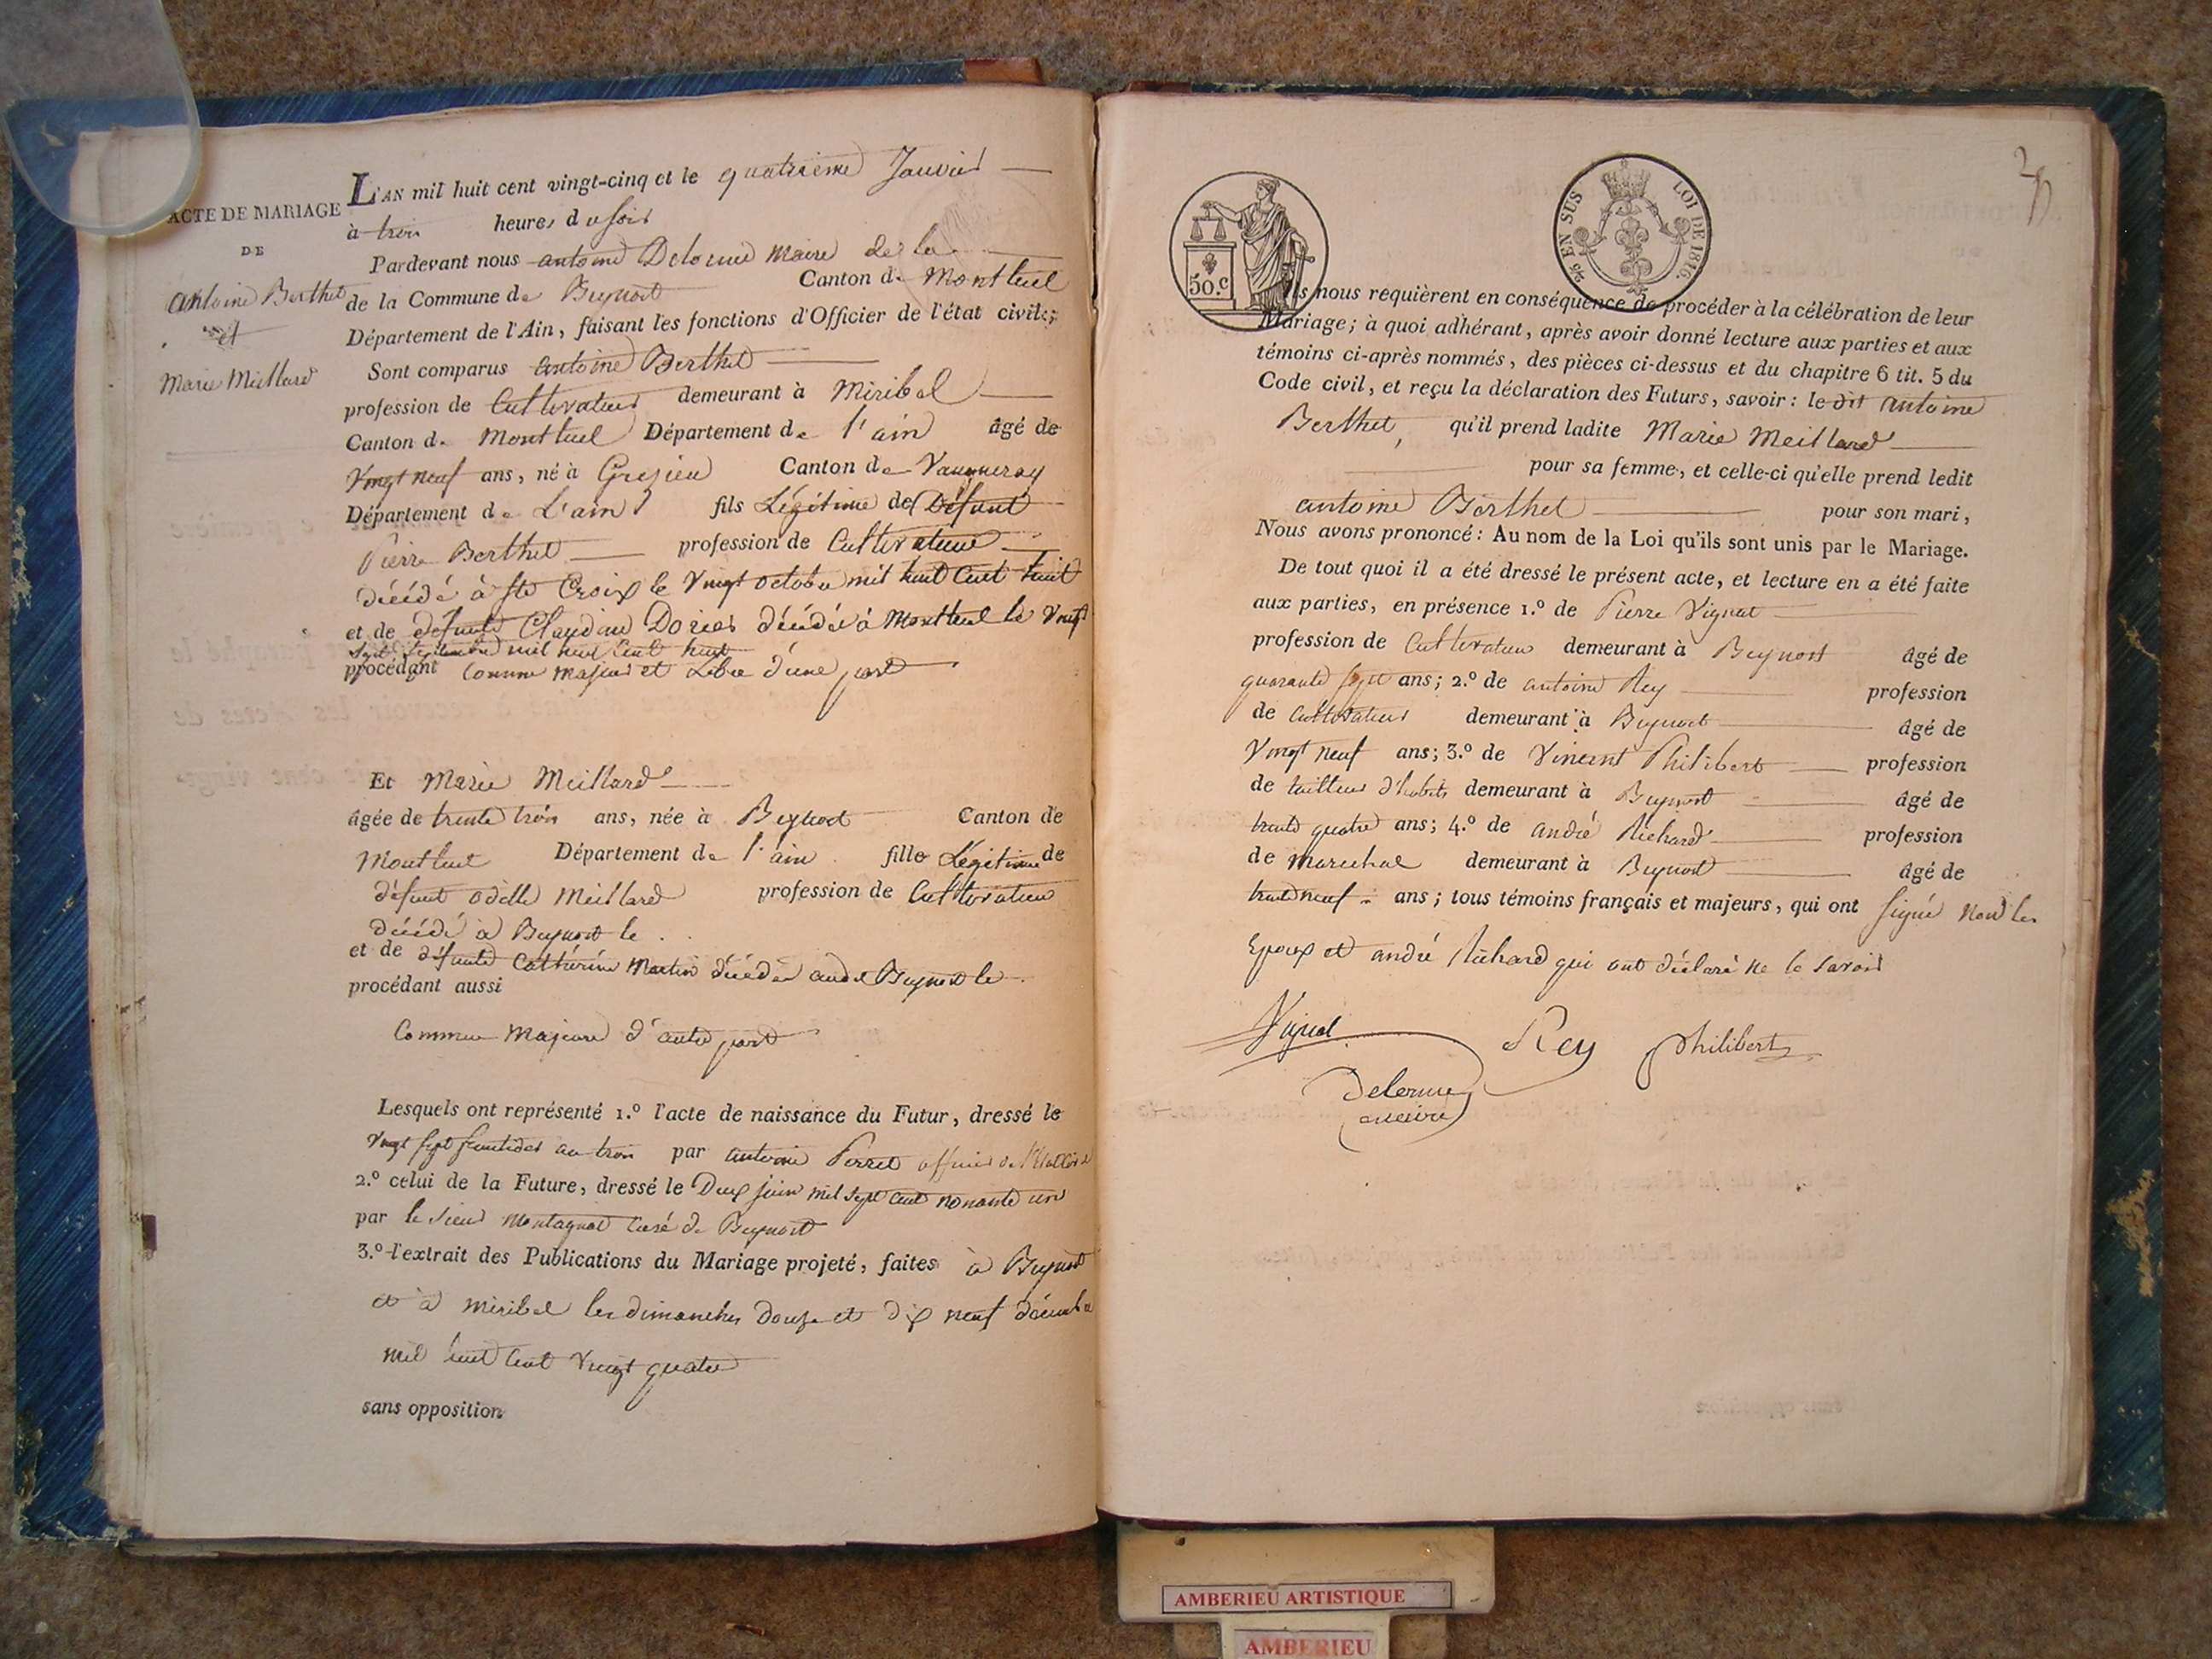 ACTE DE MARIAGE
DE
antoine Berthet
et
Marie Meillard
L'AN mil huit cent vingt-cinq et le quatrieme Janvier
à trois heures du soir
Pardevant nous antoine Delorme Maire de la
de la Commune de Beynost Canton de Montluel
Département de l'Ain, faisant les fonctions d'Officier de l'état civil;
Sont comparus antoine Berthet
profession de Cultivateur demeurant à Miribel
Canton de Montluel Département de l'ain âgé de
Vingt neuf ans, né à Grezieu Canton de Vaugneray
Département de L'ain fils Légitime de Défunt
Pierre Berthet profession de Cultivateur
décédé à Ste Croix le Vingt octobre mil huit Cent huit
et de défunte Claudine Dorier décédée à Montluel le Vingt
Sept Septembre mil huit Cent huit
procédant Comme majeur et Libre d'une part
Et Marie Meillard
âgée de trente trois ans, née à Beynost Canton de
Montluel Département de l'ain fille Légitime de
défunt odille Meillard profession de Cultivateur
décédé à Beynost le .
et de défunte Cathérine Martin décédée audit Beynost le .
procédant aussi
Comme Majeure d'autre part
Lesquels ont représenté 1.º l'acte de naissance du Futur, dressé le
Vingt Sept an trois par antoine Perret officier
2.º celui de la Future, dressé le Deux juin mil Sept Cent nonante un
par le Sieur Montagnat Curé de Beynost
3.º l'extrait des Publications du Mariage projeté, faites à Beynost
et à Miribel les dimanches douze et dix neuf décembre
mil huit Cent Vingt quatre
sans opposition
50.c
EN SUS LOI DE 1816.
Ils nous requièrent en conséquence de procéder à la célébration de leur
Mariage; à quoi adhérant, après avoir donné lecture aux parties et aux
témoins ci-après nommés, des pièces ci-dessus et du chapitre 6 tit. 5 du
Code civil, et reçu la déclaration des Futurs, savoir: le dit antoine
Berthet, qu'il prend ladite Marie Meillard
pour sa femme, et celle-ci qu'elle prend ledit
antoine Berthet pour son mari,
Nous avons prononcé: Au nom de la Loi qu'ils sont unis par le Mariage.
De tout quoi il a été dressé le présent acte, et lecture en a été faite
aux parties, en présence 1.º de Pierre Vignat
profession de Cultivateur demeurant à Beynost âgé de
quarante Sept ans; 2.º de antoine Rey profession
de Cultivateur demeurant à Beynost âgé de
Vingt neuf ans; 3.º de Vincent Philibert profession
de tailleur d'habits demeurant à Beynost âgé de
trente quatre ans; 4.º de andré Richard profession
de marechal demeurant à Beynost âgé de
trente neuf ans; tous témoins français et majeurs, qui ont Signé non les
Epoux et andré Richard qui ont déclaré ne le Savoir
Vignat Rey Philibert
Delorme
maire
AMBERIEU ARTISTIQUE
AMBERIEU